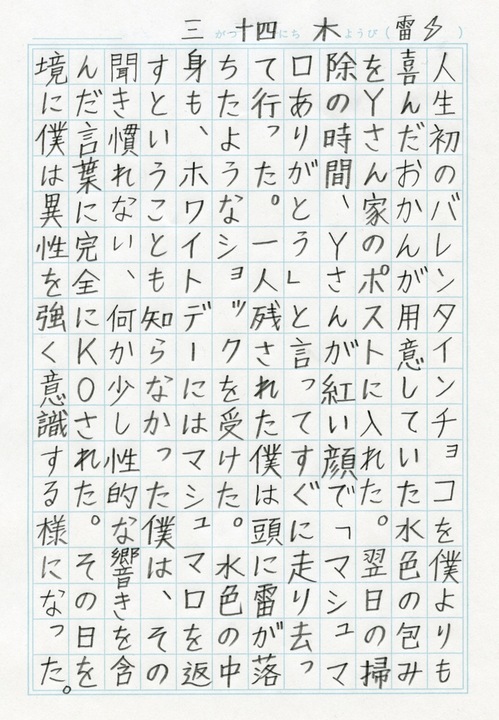 三がつ十四にち木ようび(雷)
人生初のバレンタインチョコを僕よりも
喜んだおかんが用意していた水色の包み
をYさん家のポストに入れた。翌日の掃
除の時間、Yさんが紅い顔で「マシュマ
ロありがとう」と言ってすぐに走り去っ
て行った。一人残された僕は頭に雷が落
ちたようなショックを受けた。水色の中
身も、ホワイトデーにはマシュマロを返
すということも知らなかった僕は、その
聞き慣れない、何か少し性的な響きを含
んだ言葉に完全にKOされた。その日を
境に僕は異性を強く意識する様になった。